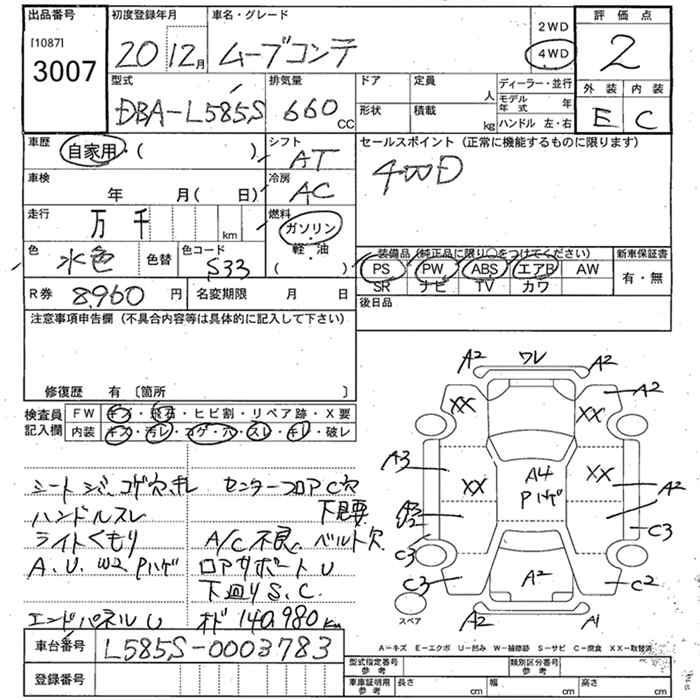 出品番号 初度登録年月 車名・グレード 評価点
[1087] 3007 20 12月 ムーブコンテ 2WD 4WD 2
型式 排気量 ドア 定員 人 ディーラー・並行 外装 内装
DBA-L585S 660 CC 形状 積載 kg モデル年式 年 ハンドル 左・右 E C
車歴 自家用・( ) シフト AT セールスポイント (正常に機能するものに限ります)
車検 年 月( 日) 冷房 AC 4WD
走行 万 千 km 燃料 ガソリン・軽油 ( )
色 水色 色替 色コード S33 装備品 (純正品に限り○をつけてください) 新車保証書
PS PW ABS エアB AW 有・無
SR ナビ TV カワ
R券 8,960 円 名変期限 月 日 後日品
注意事項申告欄 (不具合内容等は具体的に記入して下さい)
修復歴 有 〔箇所 〕
検査員記入欄 FW キズ・飛石・ヒビ割・リペア跡・X要
内装 キズ・汚レ・コゲ・穴・スレ・キレ・破レ
シートシミ、コゲ穴、キレ センターフロアC穴
ハンドルスレ 下見要
ライトくもり A/C不良、ベルト欠
A.U.W2 Pハゲ ロアサポートU
下廻りS.C.
エンドパネルU オド 140,980km
A2 ワレ A2
XX XX A2
A3 XX A4 Pハゲ XX A2
A3 U2
C3 C3
C3 A2 C2
スペア A2 A1
A-キズ E-エクボ U-凹み W-補修跡 S-サビ C-腐食 XX-取替済
車台番号 L585S-0003783
登録番号
型式指定番号 参考 類別区分番号 参考
車庫証明用 参考 長さ cm 幅 cm 高さ cm